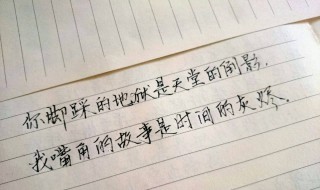 你脚踩的地狱是天堂的倒影.
我嘴角的故事是时间的灰烬.